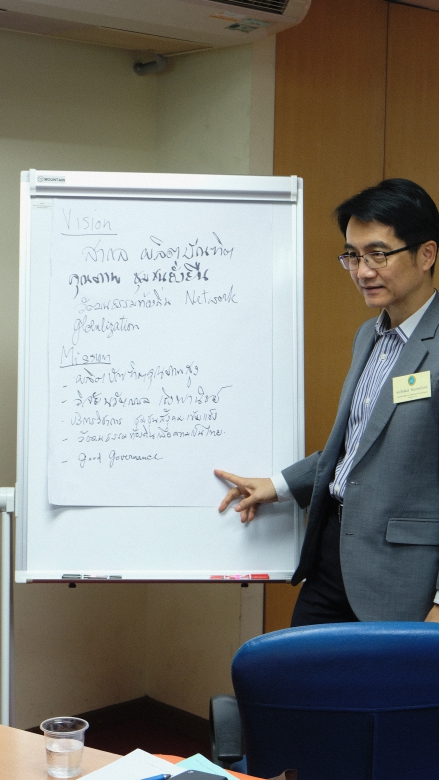 MOUNTAIN
Vision
สากล ผลิตบัณฑิต
คุณภาพ ชุมชนยั่งยืน
วัฒนธรรมท้องถิ่น Network
globalization
Mission
- ผลิตบัณฑิตคุณภาพสูง
- วิจัย นวัตกรรม
- บริการวิชาการ ชุมชนสังคมเข้มแข็ง
- วัฒนธรรมท้องถิ่น ความเป็นไทย.
- good governance